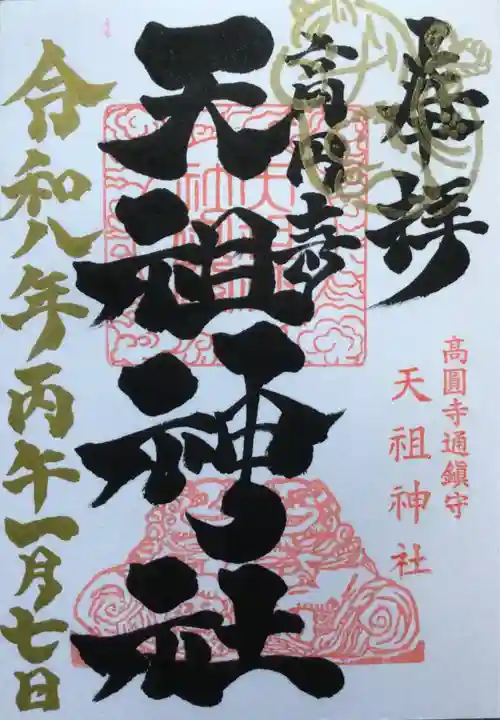 奉拝
高円寺
天祖神社
高圓寺通鎮守
天祖神社
令和八年丙午一月七日